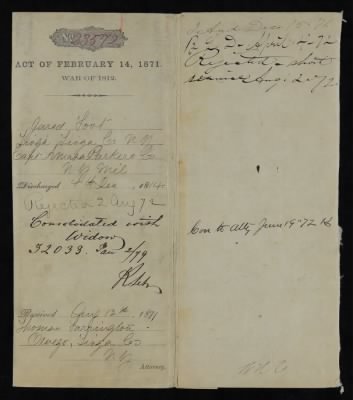 No. 23572
ACT OF FEBRUARY 14, 1871.
WAR OF 1812.
Jared Foot
Tioga Tioga Co N.Y.
Capt Parkers Co
N.Y. Mil
Discharged Dec, 1814
Rejected 2 Aug 72
Consolidated with
Widow
32033. Jan 2/79
Received Aug 12th, 1871
Thomas Farrington
Owego, Tioga Co
N.Y.
Attorney.
Dec 15" 71
April 2, 72
Rejected short
service Aug. 2" 72.
Atty June 19" 72